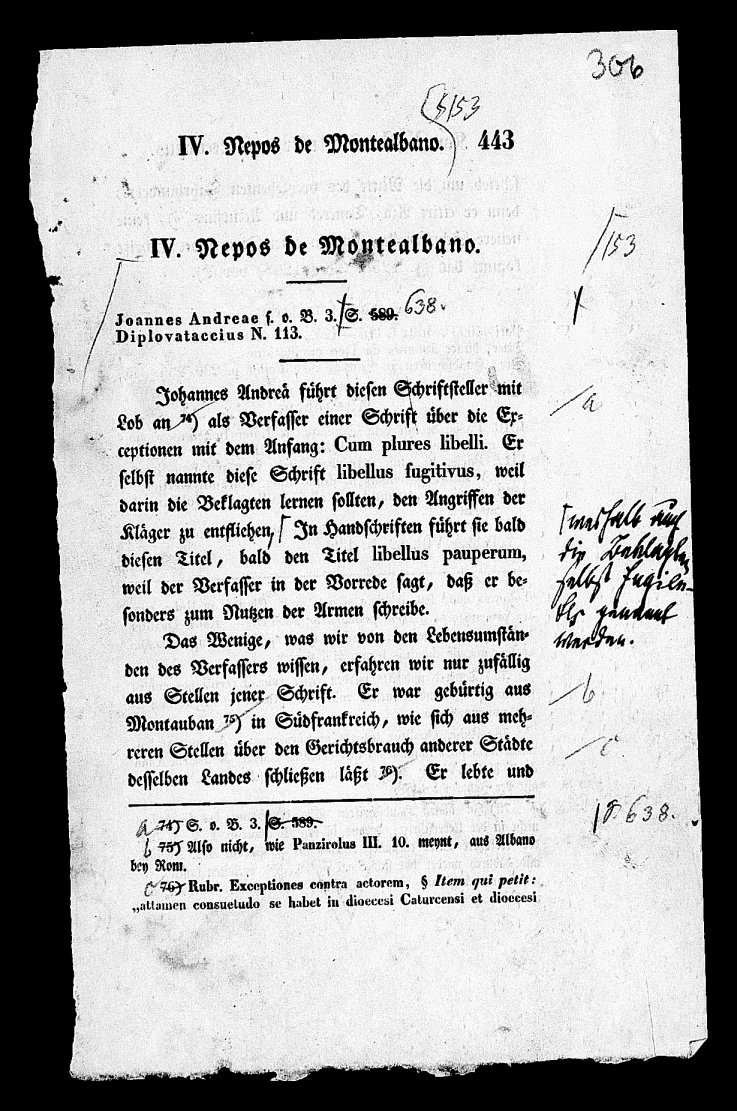 306
§ 153
IV. Nepos de Montealbano. 443
IV. Nepos de Montealbano.
153
Joannes Andreae s. o. B. 3. S. 589. 638.
Diplovataccius N. 113.
Johannes Andreä führt diesen Schriftsteller mit
Lob an 74) als Verfasser einer Schrift über die Ex-
a
ceptionen mit dem Anfang: Cum plures libelli. Er
selbst nannte diese Schrift libellus fugitivus, weil
darin die Beklagten lernen sollten, den Angriffen der
Kläger zu entfliehen, In Handschriften führt sie bald
diesen Titel, bald den Titel libellus pauperum,
weil der Verfasser in der Vorrede sagt, daß er be-
sonders zum Nutzen der Armen schreibe.
weshalb auch
die Beklagten
selbst
genannt
werden.
Das Wenige, was wir von den Lebensumstän-
den des Verfassers wissen, erfahren wir nur zufällig
aus Stellen jener Schrift. Er war gebürtig aus
b
Montauban 75) in Südfrankreich, wie sich aus meh-
reren Stellen über den Gerichtsbrauch anderer Städte
c
desselben Landes schließen läßt 76). Er lebte und
a 74) S. o. B. 3. S. 589.
638.
b 75) Also nicht, wie Panzirolus III. 10. meynt, aus Albano
bey Rom.
c 76) Rubr. Exceptiones contra actorem, § Item qui petit:
„attamen consuetudo se habet in dioecesi Caturcensi et dioecesi